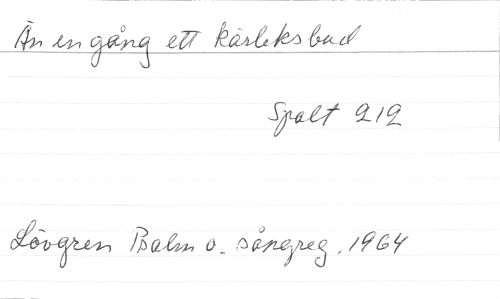 Än en gång ett kärleksbud
Spalt 212
Lövgren Psalm o. sångreg. 1964